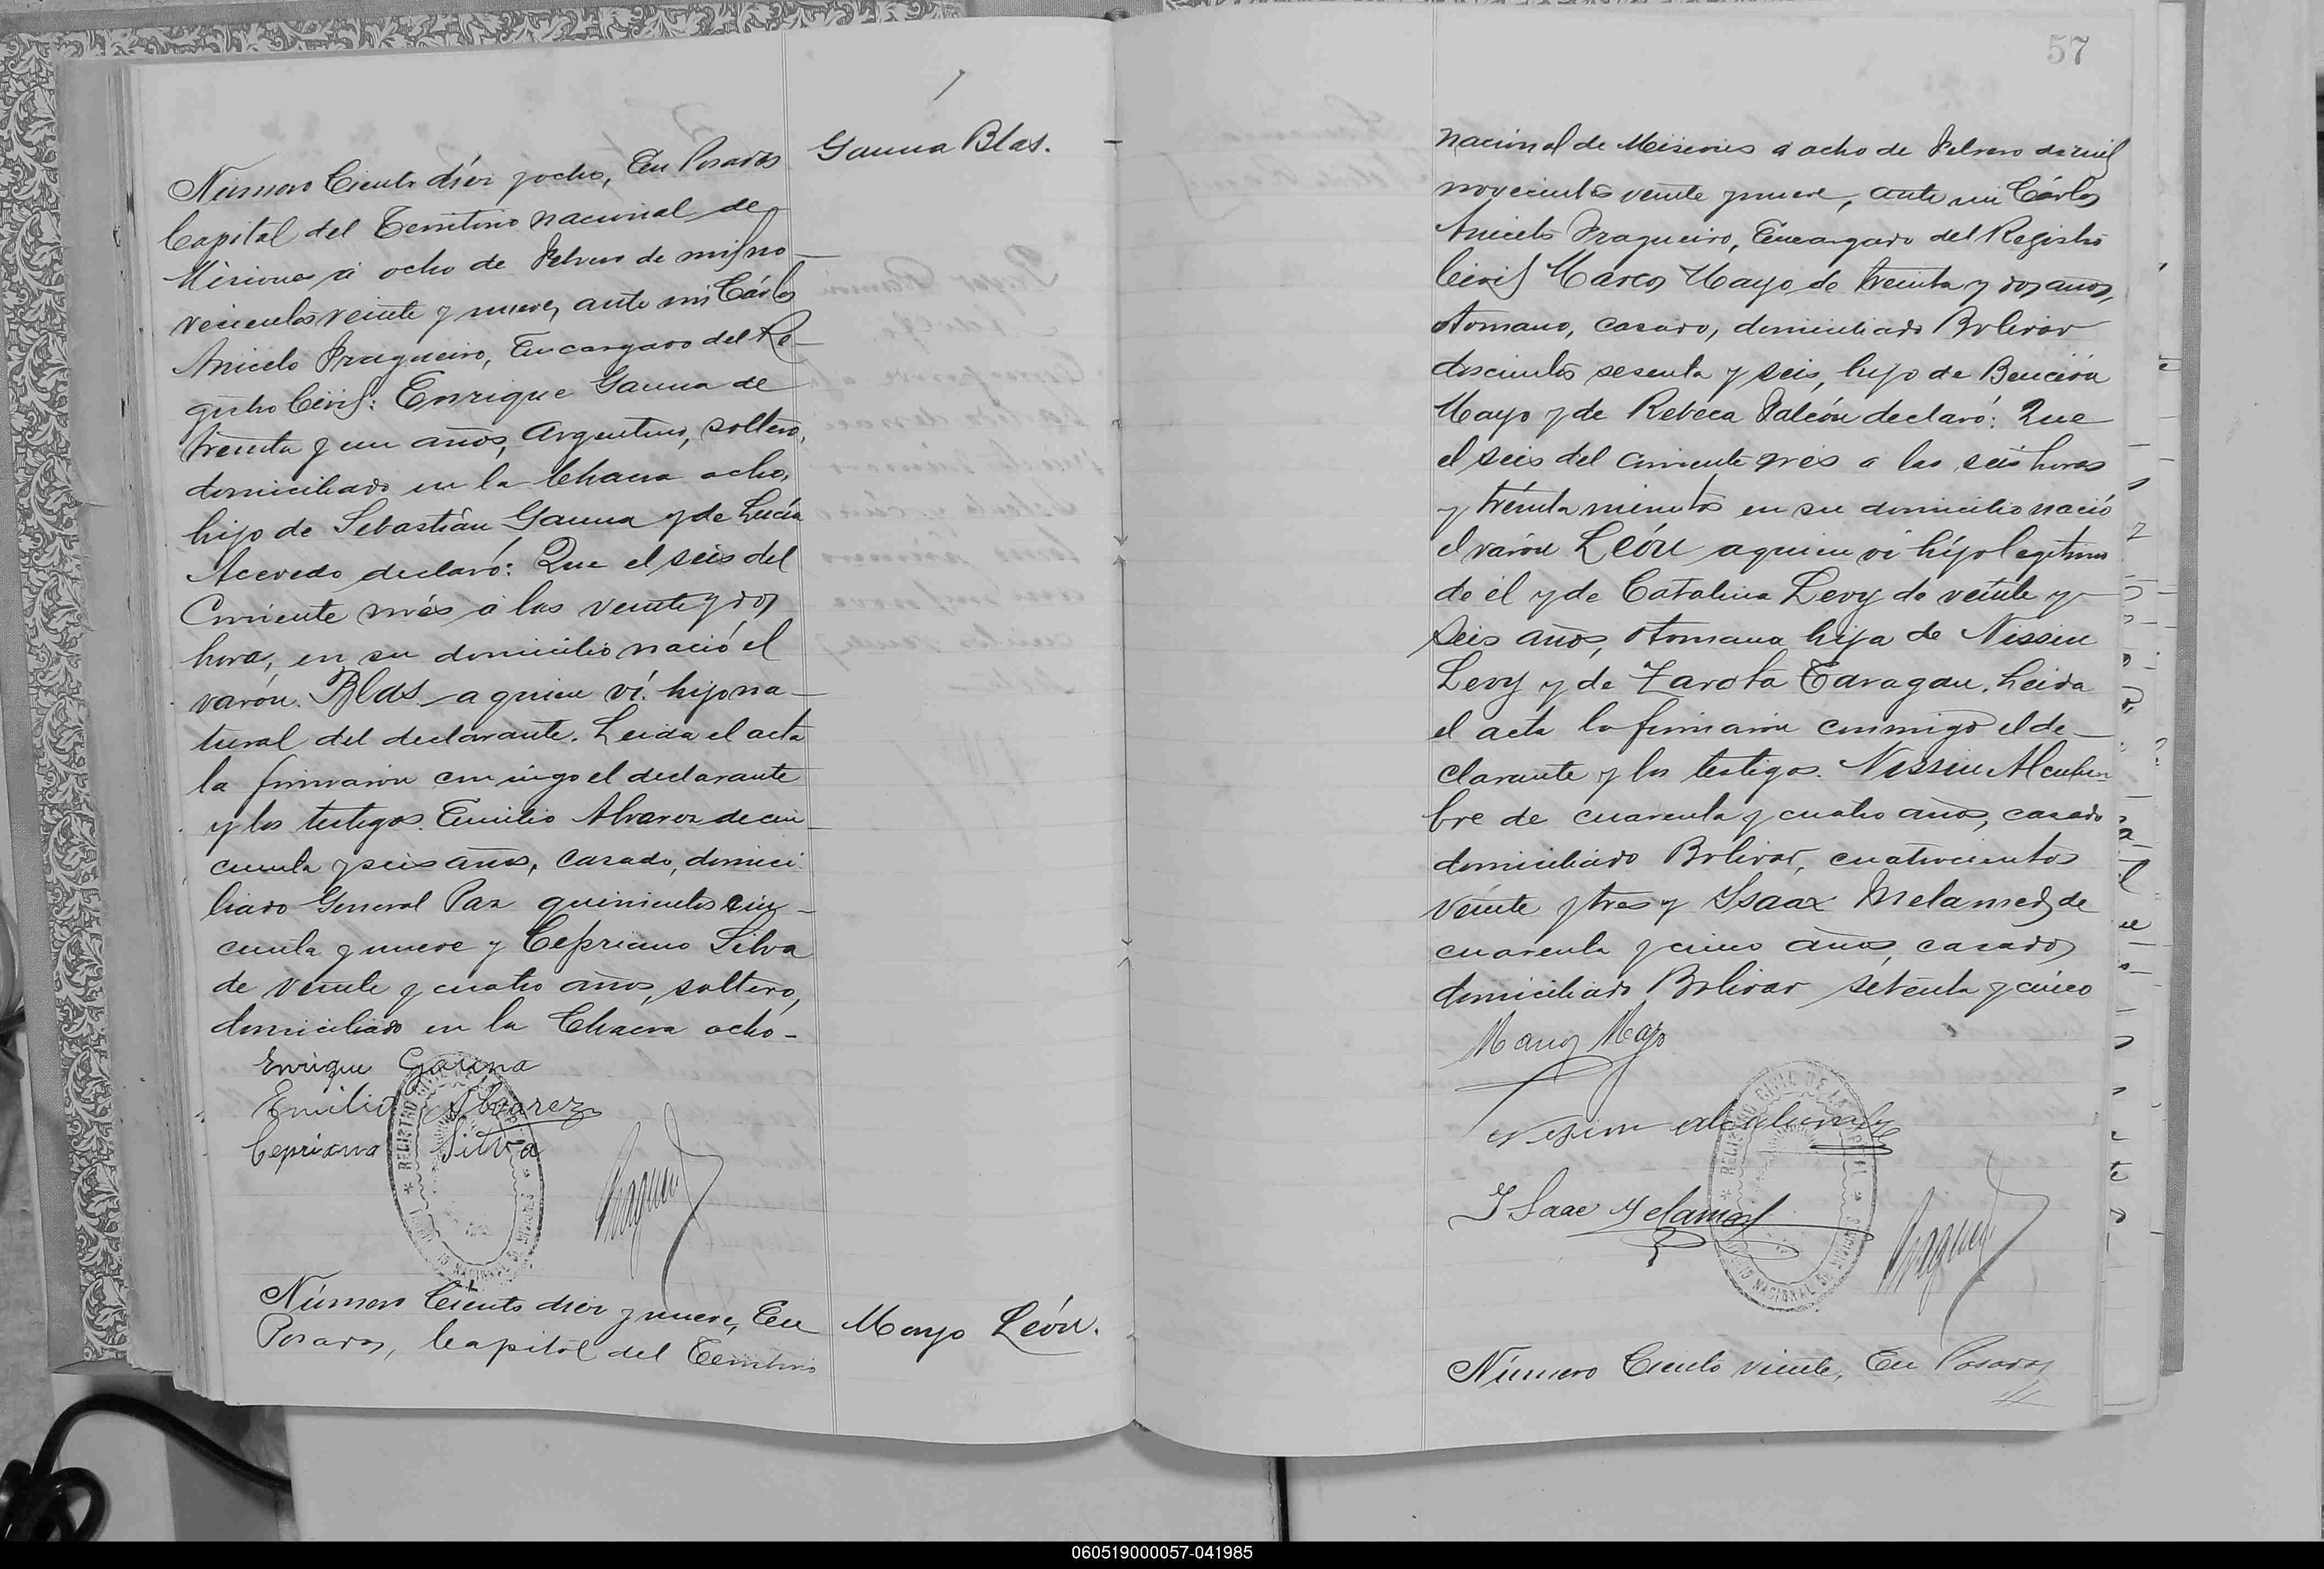 Gauna Blas.
Número Ciento diez y ocho, En Posadas
Capital del Territorio nacional de
Misiones á ocho de Febrero de mil no-
vecientos veinte y nueve, ante mi Cárlos
Aniceto Fragueiro, Encargado del Re-
gistro Civil: Enrique Gauna de
treinta y un años, Argentino, soltero,
domiciliado en la Chacra ocho,
hijo de Sebastián Gauna y de Lucía
Acevedo declaró: Que el seis del
Corriente més á las veinte y dos
horas, en su domicilio nació el
varón Blas a quien ví: hijo na-
tural del declarante. Leida el acta
la firmaron conmigo el declarante
y los testigos. Emilio Alvarez de cin-
cuenta y seis años, casado, domici-
liado General Paz quinientos cin-
cuenta y nueve y Cepriano Silva
de veinte y cuatro años, soltero,
domiciliado en la Chacra ocho-
Enrique Gauna
Emilio Alvarez
Cepriano Silva
REGISTRO CIVIL DE LA
Número Ciento diez y nueve, En
Posadas, Capital del Territorio
Mayo León.
57
nacional de Misiones a ocho de Febrero de mil
novecientos veinte y nueve, ante mi Cárlos
Aniceto Fragueiro, Encargado del Registro
Civil Marcos Mayo de treinta y dos años,
otomano, casado, domiciliado Bolivar
doscientos sesenta y seis, hijo de Bención
Mayo y de Rebeca Falcón declaró: Que
el seis del corriente més a las seis horas
y treinta minutos en su domicilio nació
el varón León a quien ví hijo legitimo
de él y de Catalina Levy de veinte y
seis años, otomana hija de Nissin
Levy y de Zarota Taragan. Leida
el acta la firmaron conmigo el de-
clarante y los testigos. Nissin
bre de cuarenta y cuatro años, casado
domiciliado Bolivar, cuatrocientos
veinte y tres y Isaax Melamed de
cuarenta y cinco años, casado
domiciliado Bolivar setenta y cinco
Marcos Mayo
Isaac Melamed
REGISTRO CIVIL DE LA CAPITAL
Número Ciento veinte, En Posadas
060519000057-041985